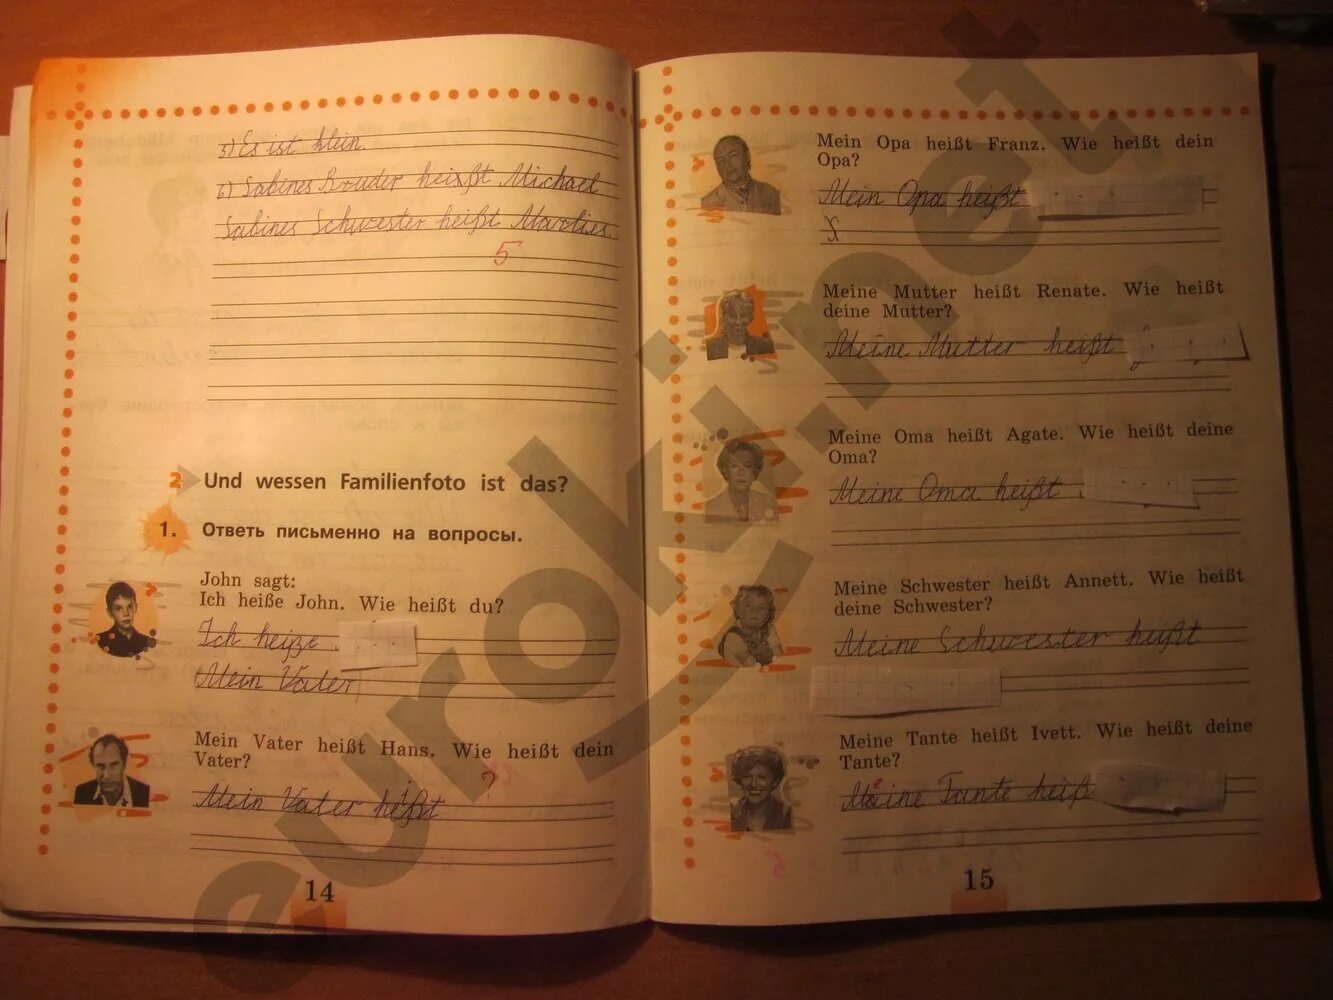 з) Es ist klein.
б) Sabines Bruder heißt Michael
Sabines Schwester heißt Marlies.
5
2 Und wessen Familienfoto ist das?
1. Ответь письменно на вопросы.
John sagt:
Ich heiße John. Wie heißt du?
Ich heiße
Mein Vater
Mein Vater heißt Hans. Wie heißt dein
Vater?
?
Mein Vater heißt
14
Mein Opa heißt Franz. Wie heißt dein
Opa?
Mein Opa heißt
Meine Mutter heißt Renate. Wie heißt
deine Mutter?
Meine Mutter heißt
Meine Oma heißt Agate. Wie heißt deine
Oma?
Meine Oma heißt
Meine Schwester heißt Annett. Wie heißt
deine Schwester?
Meine Schwester heißt
Meine Tante heißt Ivett. Wie heißt deine
Tante?
Meine Tante heiß
15
euroki.net